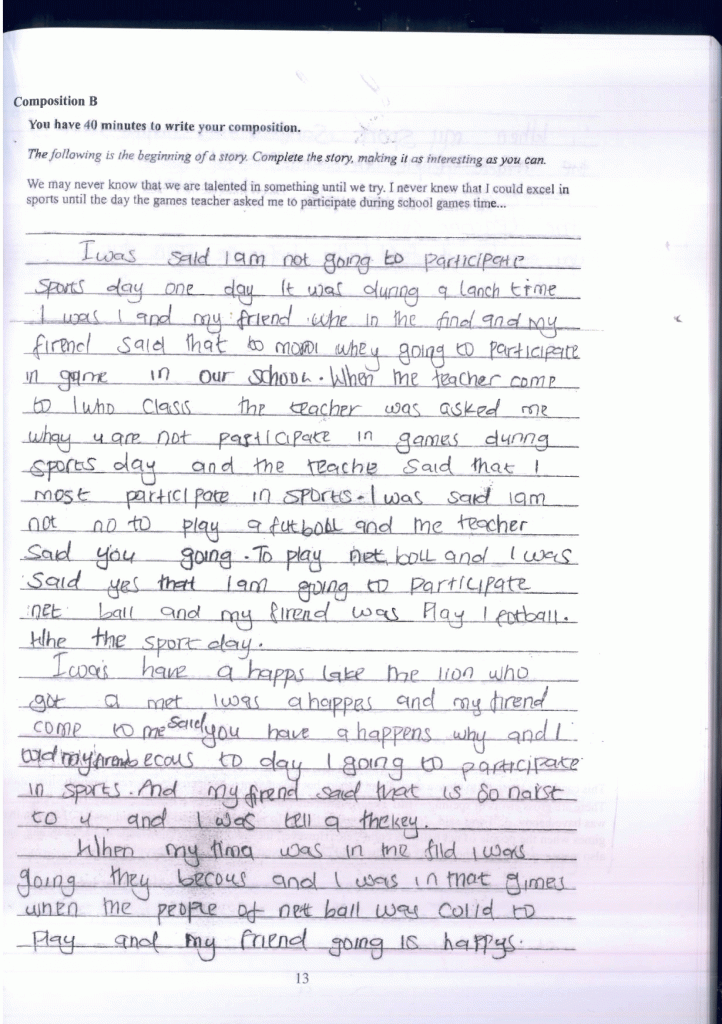 Composition B
You have 40 minutes to write your composition.
The following is the beginning of a story. Complete the story, making it as interesting as you can.
We may never know that we are talented in something until we try. I never knew that I could excel in
sports until the day the games teacher asked me to participate during school games time...
I was said I am not going to participate
sports day one day It was during a lanch time
I was I and my friend whe in the find and my
firend said that to moroi whey going to participate
in game in our school. When the teacher come
to I who class the teacher was asked me
whay u are not participate in games during
sports day and the teache said that I
most participate in sports. I was said iam
not no to play a futboll and the teacher
said you going. To play net boll and I was
said yes that I am going to participate
net ball and my firend was Play I eotball.
Whe the sport day.
I was have a happs lake the lion who
got a met I was a happes and my firend
come to me said you have a happens why and I
told my firend becous to day I going to participate
in sports. And my frend said that is so naist
to u and I was tell a thekey.
When my tima was in the fild I was
going they becous and I was in that gimes
when the people of net ball was colid to
Play and my friend going is happys.
13